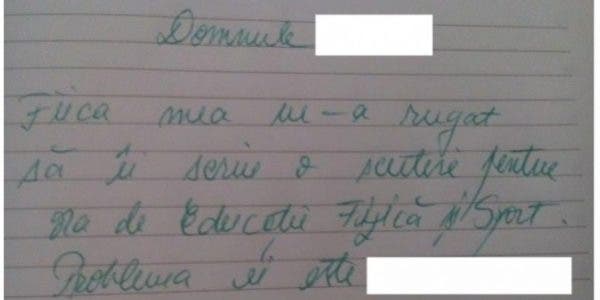 Domnule
Fiica mea m-a rugat
să îi scriu o scutire pentru
ora de Educație Fizică și Sport.
Problema ei este